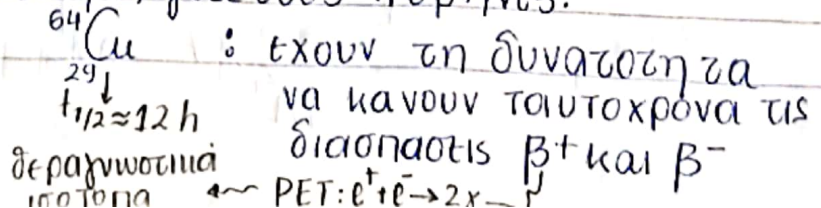 ⁶⁴Cu : εχουν τη δυνατοτητα
29
t₁/₂≈12h να κανουν ταυτοχρονα τις
διασπασεις β⁺ και β⁻
θεραγνωστικά
ισοτοπα ← PET: e⁺+e⁻→2γ